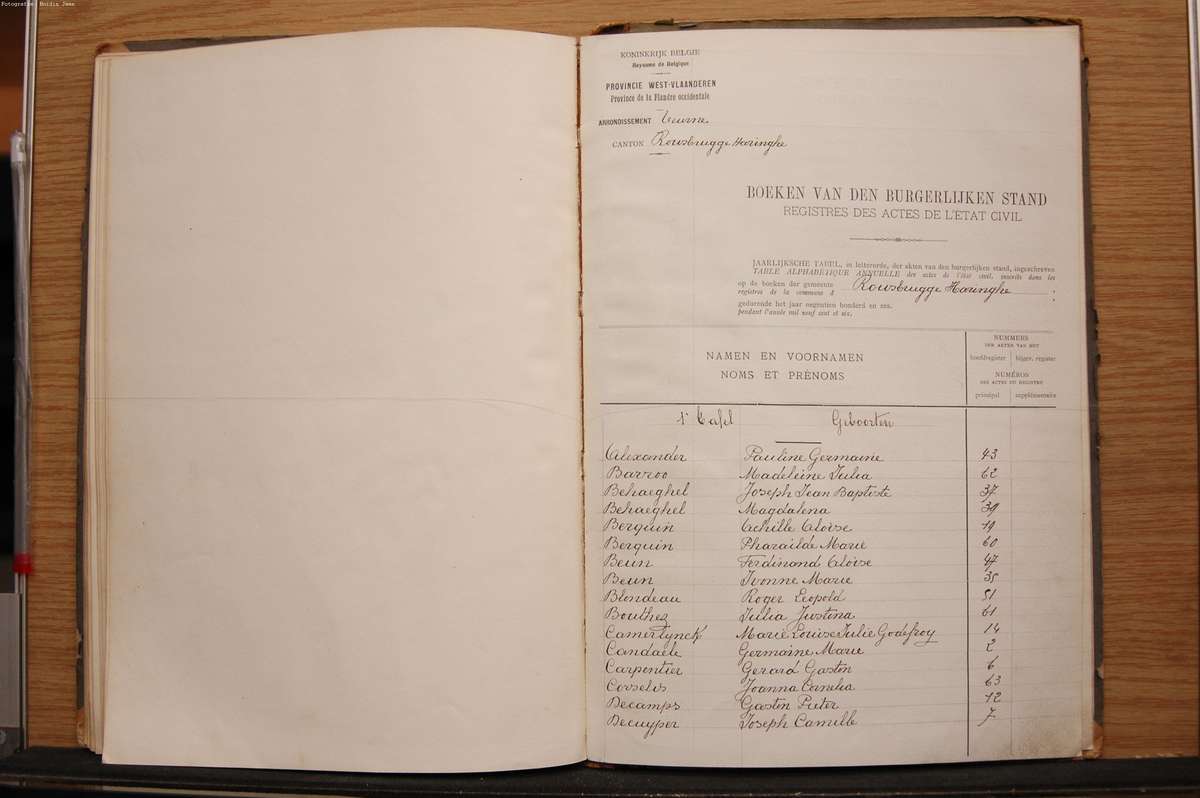 Fotografie: Boidin Jane
KONINKRIJK BELGIE
Royaume de Belgique
PROVINCIE WEST-VLAANDEREN
Province de la Flandre occidentale
ARRONDISSEMENT Veurne
CANTON Rousbrugge Haringhe
BOEKEN VAN DEN BURGERLIJKEN STAND
REGISTRES DES ACTES DE L'ETAT CIVIL
JAARLIJKSCHE TABEL, in letterorde, der akten van den burgerlijken stand, ingeschreven
TABLE ALPHABÉTIQUE ANNUELLE des actes de l'état civil, inscrits dans les
op de boeken der gemeente
registres de la commune d Rousbrugge Haringhe
gedurende het jaar negentien honderd en zes.
pendant l'année mil neuf cent et six.
NAMEN EN VOORNAMEN
NOMS ET PRÉNOMS
NUMMERS
DER AKTEN VAN HET
hoofdregister bijgev. register
NUMÉROS
DES ACTES DU REGISTRE
principal supplémentaire
1e Tafel Geboorten
Alexander Pauline Germaine 43
Barroo Madeleine Julia 62
Behaeghel Joseph Jean Baptiste 37
Behaeghel Magdalena 39
Berquin Achille Aloïse 19
Berquin Pharaïlde Marie 60
Beun Ferdinand Aloïse 47
Beun Ivonne Marie 35
Blondeau Roger Leopold 51
Bouthez Julia Justina 61
Camerlynck Marie Louise Julie Godefroy 14
Candaele Germaine Marie 2
Carpentier Gerard Gaston 6
Corselis Joanna Camelia 63
Decamps Gaston Pieter 12
Decuyper Joseph Camille 7